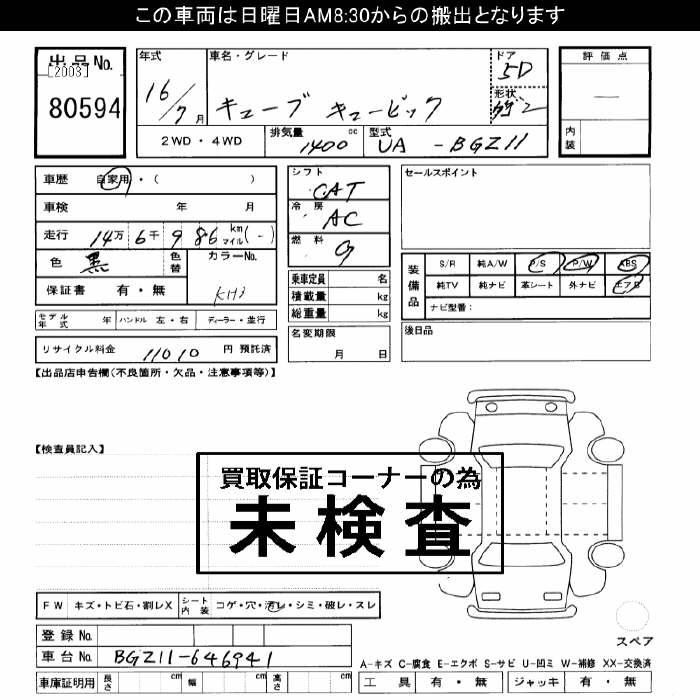 この車両は日曜日AM8:30からの搬出となります
出品No.
[2003]
80594
年式
16/7月
車名・グレード
キューブ キュービック
ドア
5D
形状
評価点
—
内装
2WD・4WD
排気量
1400cc
型式
UA - BGZ11
車歴 自家用・( )
車検 年 月
走行 14万6千986 km マイル(-)
色 黒
色替
カラーNo.
KH3
保証書 有・無
シフト
CAT
冷房
AC
燃料
G
乗車定員 名
積載量 kg
総重量 kg
セールスポイント
装備品
S/R 純A/W P/S P/W ABS
純TV 純ナビ 革シート 外ナビ エアB
ナビ型番:
モデル年式 年 ハンドル 左・右 ディーラー・並行
名変期限
月 日
後日品
リサイクル料金 11010 円 預託済
【出品店申告欄(不良箇所・欠品・注意事項等)】
【検査員記入】
買取保証コーナーの為
未検査
FW キズ・トビ石・割レX シート内装 コゲ・穴・汚レ・シミ・破レ・スレ
登録No.
車台No. BGZ11-646941
車庫証明用 長さ cm 幅 cm 高さ cm
スペア
A-キズ C-腐食 E-エクボ S-サビ U-凹ミ W-補修 XX-交換済
工具 有・無 ジャッキ 有・無